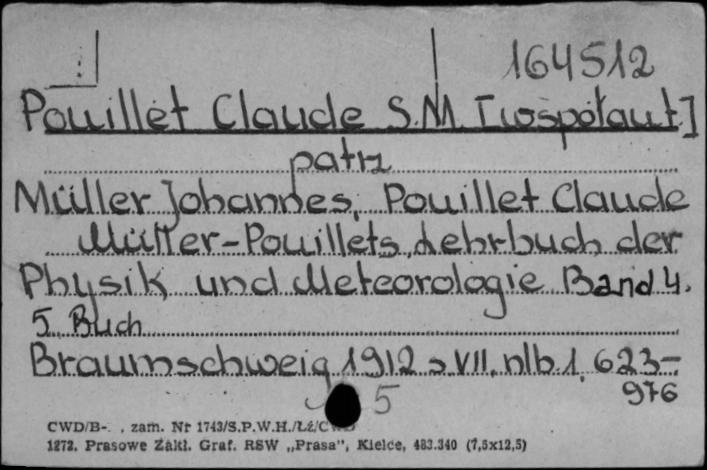 164512
Pouillet Claude S.M. [współaut]
patrz
Müller Johannes, Pouillet Claude
Müller-Pouillets Lehrbuch der
Physik und Meteorologie Band 4.
5 Buch
Braumschweig 1912 s VII, nlb 1, 623-
976
5
CWD/B- , zam. Nr 1743/S.P.W.H./Łź/
1272. Prasowe Zakł. Graf. RSW „Prasa”, Kielce, 483.340 (7,5x12,5)